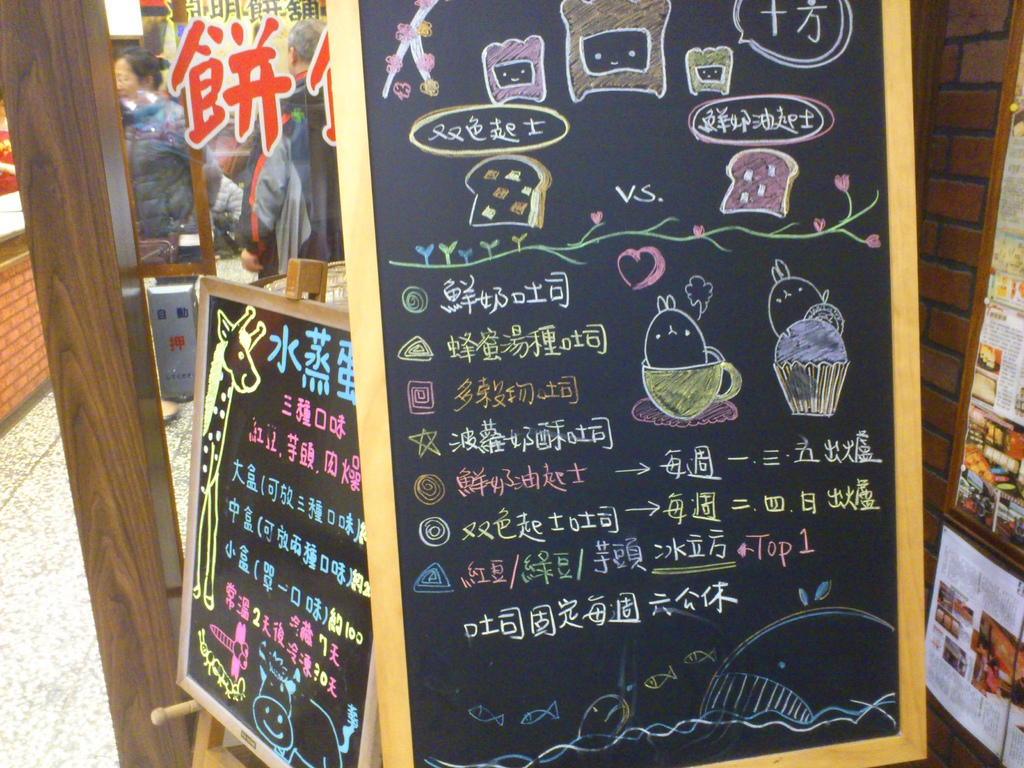 明餅舖
餅
自動
押
十方
双色起士
鮮奶油起士
vs.
鮮奶吐司
蜂蜜湯種吐司
多穀物吐司
波蘿奶酥吐司
鮮奶油起士 → 每週 一.三.五 出爐
双色起士吐司 → 每週 二.四.日 出爐
紅豆/綠豆/芋頭 冰立方 Top 1
吐司固定每週 六公休
水蒸蛋
三種口味
紅豆.芋頭.肉燥
大盒(可放三種口味)
中盒(可放兩種口味)約2
小盒(單一口味)約100
常溫2天 冷藏7天
後冷凍30天